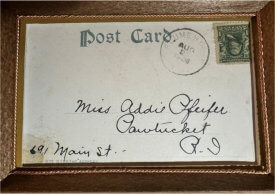 Post Card.
AUG
Miss Addie Pfeifer
Pawtucket
691 Main St. - R. I